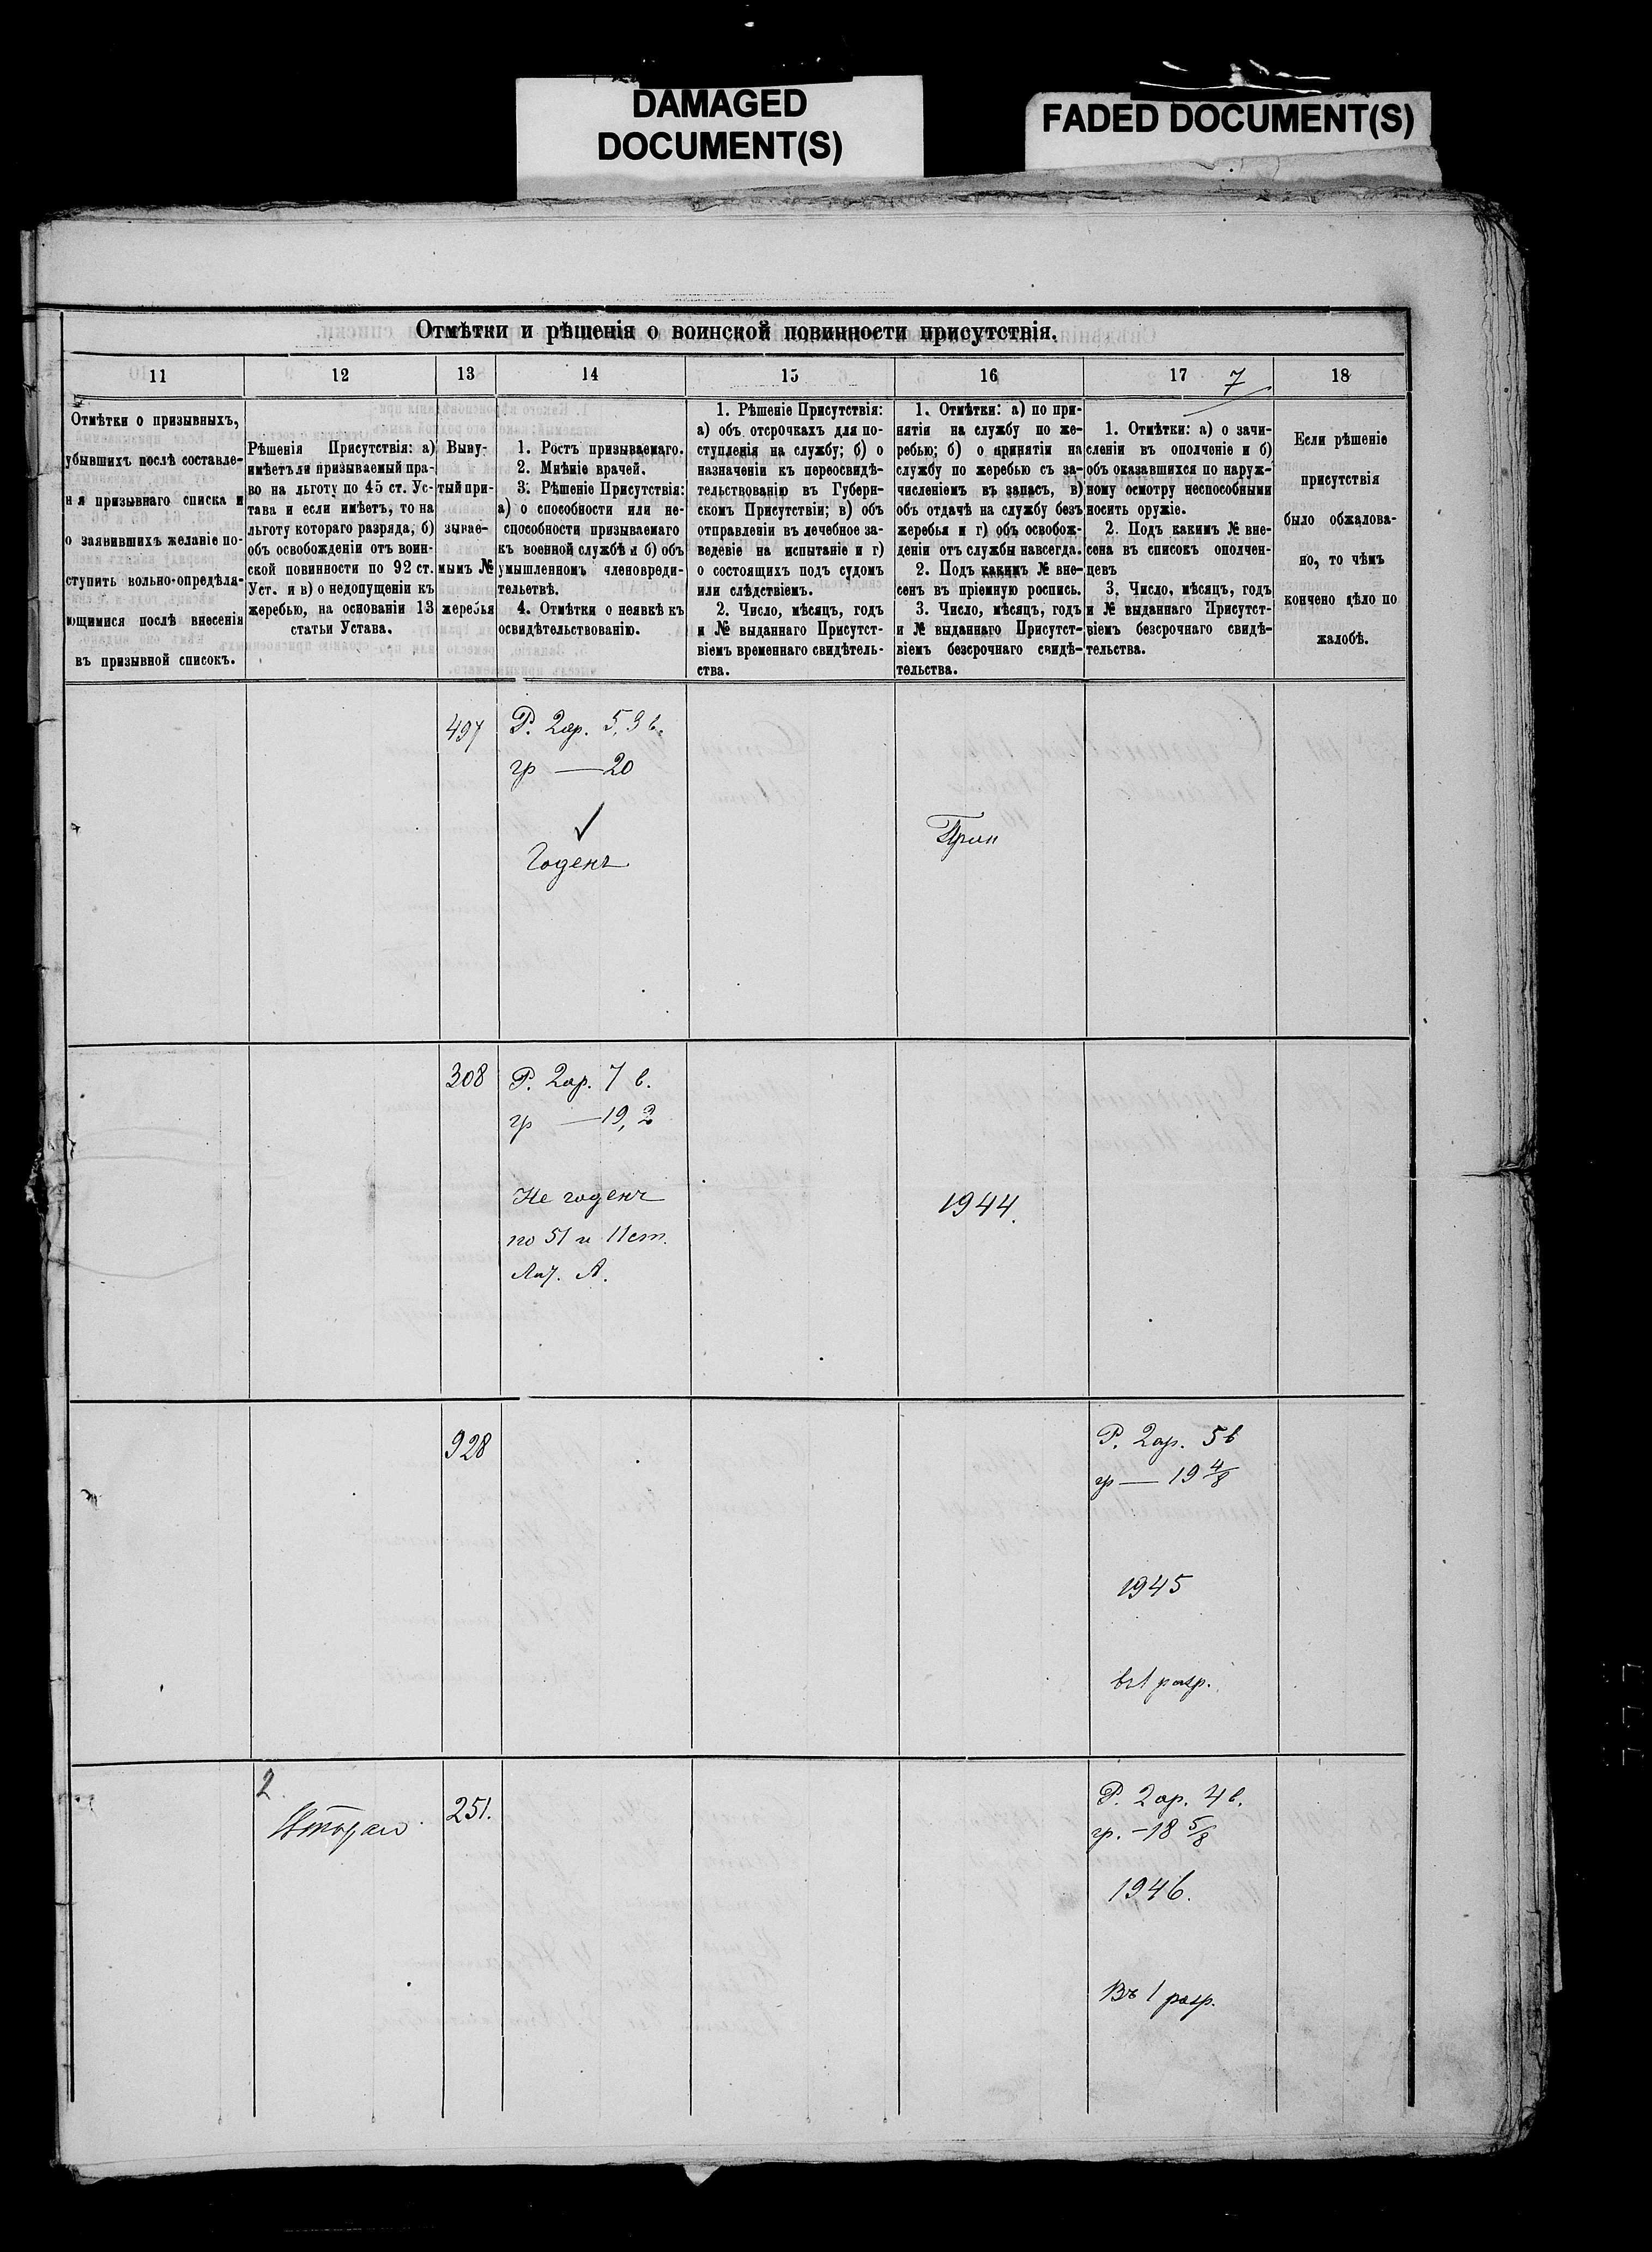 DAMAGED
DOCUMENT(S)
FADED DOCUMENT(S)
Отмѣтки и рѣшенія о воинской повинности присутствія.
11
12
13
14
15
16
17
7
18
Отмѣтки о призывныхъ,
убывшихъ послѣ составле-
нія призывнаго списка и
о заявившихъ желаніе по-
ступить вольно-опредѣля-
ющимися послѣ внесенія
въ призывной списокъ.
Рѣшенія Присутствія: а)
имѣетъ ли призываемый пра-
во на льготу по 45 ст. Ус-
тава и если имѣетъ, то на
льготу котораго разряда, б)
объ освобожденіи отъ воин-
ской повинности по 92 ст.
Уст. и в) о недопущеніи къ
жеребью, на основаніи 13
статьи Устава.
Выну-
тый при-
зывае-
мымъ №
жеребья
1. Ростъ призываемаго.
2. Мнѣніе врачей.
3. Рѣшеніе Присутствія:
а) о способности или не-
способности призываемаго
къ военной службѣ и б) объ
умышленномъ членовреди-
тельствѣ.
4. Отмѣтки о неявкѣ къ
освидѣтельствованію.
1. Рѣшеніе Присутствія:
а) объ отсрочкахъ для по-
ступленія на службу; б) о
назначеніи къ переосвидѣ-
тельствованію въ Губерн-
скомъ Присутствіи; в) объ
отправленіи въ лечебное за-
веденіе на испытаніе и г)
о состоящихъ подъ судомъ
или слѣдствіемъ.
2. Число, мѣсяцъ, годъ
и № выданнаго Присутст-
віемъ временнаго свидѣтель-
ства.
1. Отмѣтки: а) по при-
нятіи на службу по же-
ребью; б) о принятіи на
службу по жеребью съ за-
численіемъ въ запасъ, в)
объ отдачѣ на службу безъ
жеребья и г) объ освобож-
деніи отъ службы навсегда.
2. Подъ какимъ № вне-
сенъ въ пріемную роспись.
3. Число, мѣсяцъ, годъ
и № выданнаго Присутст-
віемъ безсрочнаго свидѣ-
тельства.
1. Отмѣтки: а) о зачи-
сленіи въ ополченіе и б)
объ оказавшихся по наруж-
ному осмотру неспособными
носить оружіе.
2. Подъ какимъ № вне-
сена въ списокъ ополчен-
цевъ
3. Число, мѣсяцъ, годъ
и № выданнаго Присутст-
віемъ безсрочнаго свидѣ-
тельства.
Если рѣшеніе
присутствія
было обжалова-
но, то чѣмъ
кончено дѣло по
жалобѣ.
497
Р. 2ар. 5,3 в.
гр — 20
Годенъ
Прин
308
Р. 2ар. 7 в.
гр — 19,2
Не годенъ
по 51 и 11 ст.
Лит. А.
1944.
928
Р. 2ар. 5 в
гр — 19 4/8
1945
въ 1 разр.
2.
251.
Р. 2ар. 4 в.
гр. - 18 5/8
1946.
Въ 1 разр.